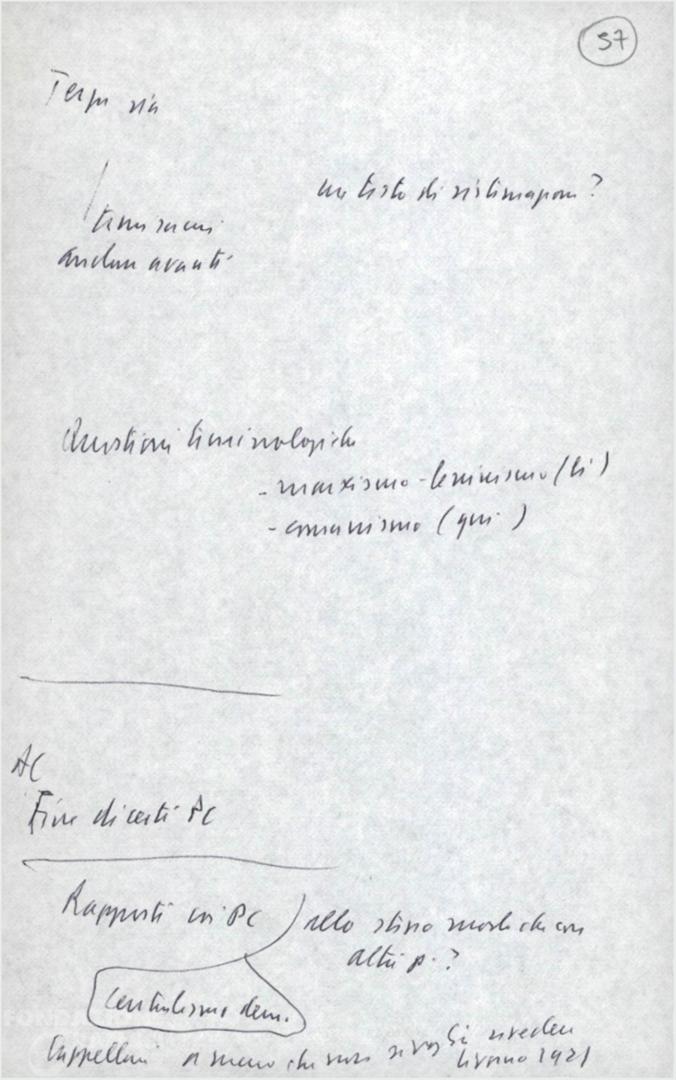 57
Terza via
un testo di sistemazione?
andare avanti
Questioni terminologiche
- marxismo-leninismo (lì)
- comunismo (qui)
AC
Fine di certi PC
Rapporti coi PC
allo stesso modo che con
altri p.?
Centralismo dem.
Cappelloni a meno che non si voglia rivedere
Livorno 1921